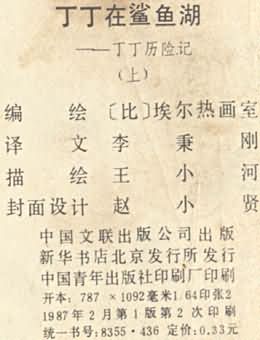 丁丁在鲨鱼湖
——丁丁历险记
(上)
编 绘 〔比〕埃尔热画室
译 文 李 秉 刚
描 绘 王 小 河
封面设计 赵 小 贤
中国文联出版公司出版
新华书店北京发行所发行
中国青年出版社印刷厂印刷
开本: 787 ×1092毫米1/64印张2
1987年2月第1版第2次印刷
统一书号:8355·436 定价:0.33元